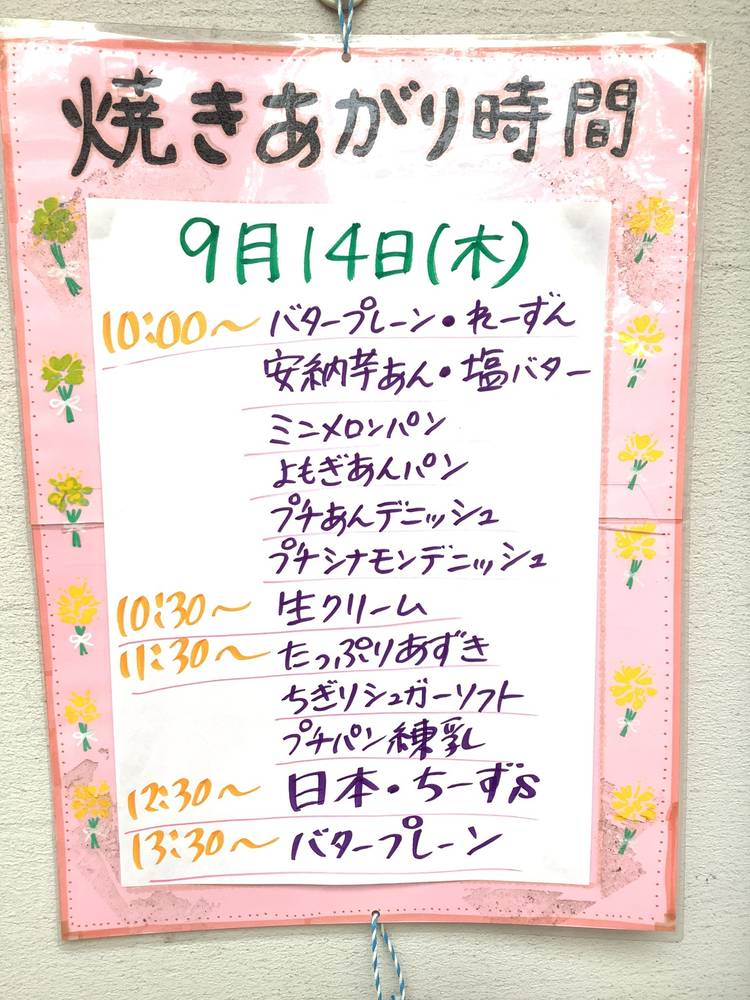 焼きあがり時間
9月14日(木)
10:00〜 バタープレーン・れーずん
安納芋あん・塩バター
ミニメロンパン
よもぎあんパン
プチあんデニッシュ
プチシナモンデニッシュ
10:30〜 生クリーム
11:30〜 たっぷりあずき
ちぎりシュガーソフト
プチパン練乳
12:30〜 日本・ちーずS
13:30〜 バタープレーン